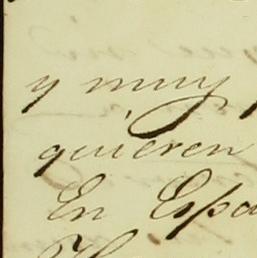 y muy
quieren
En Espa